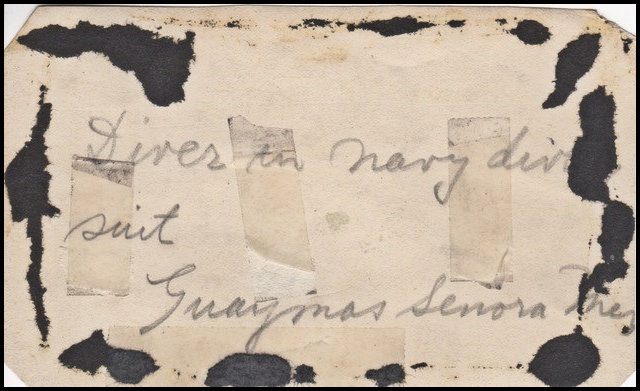 Diver in navy div
suit
Guaymas Senora Mex